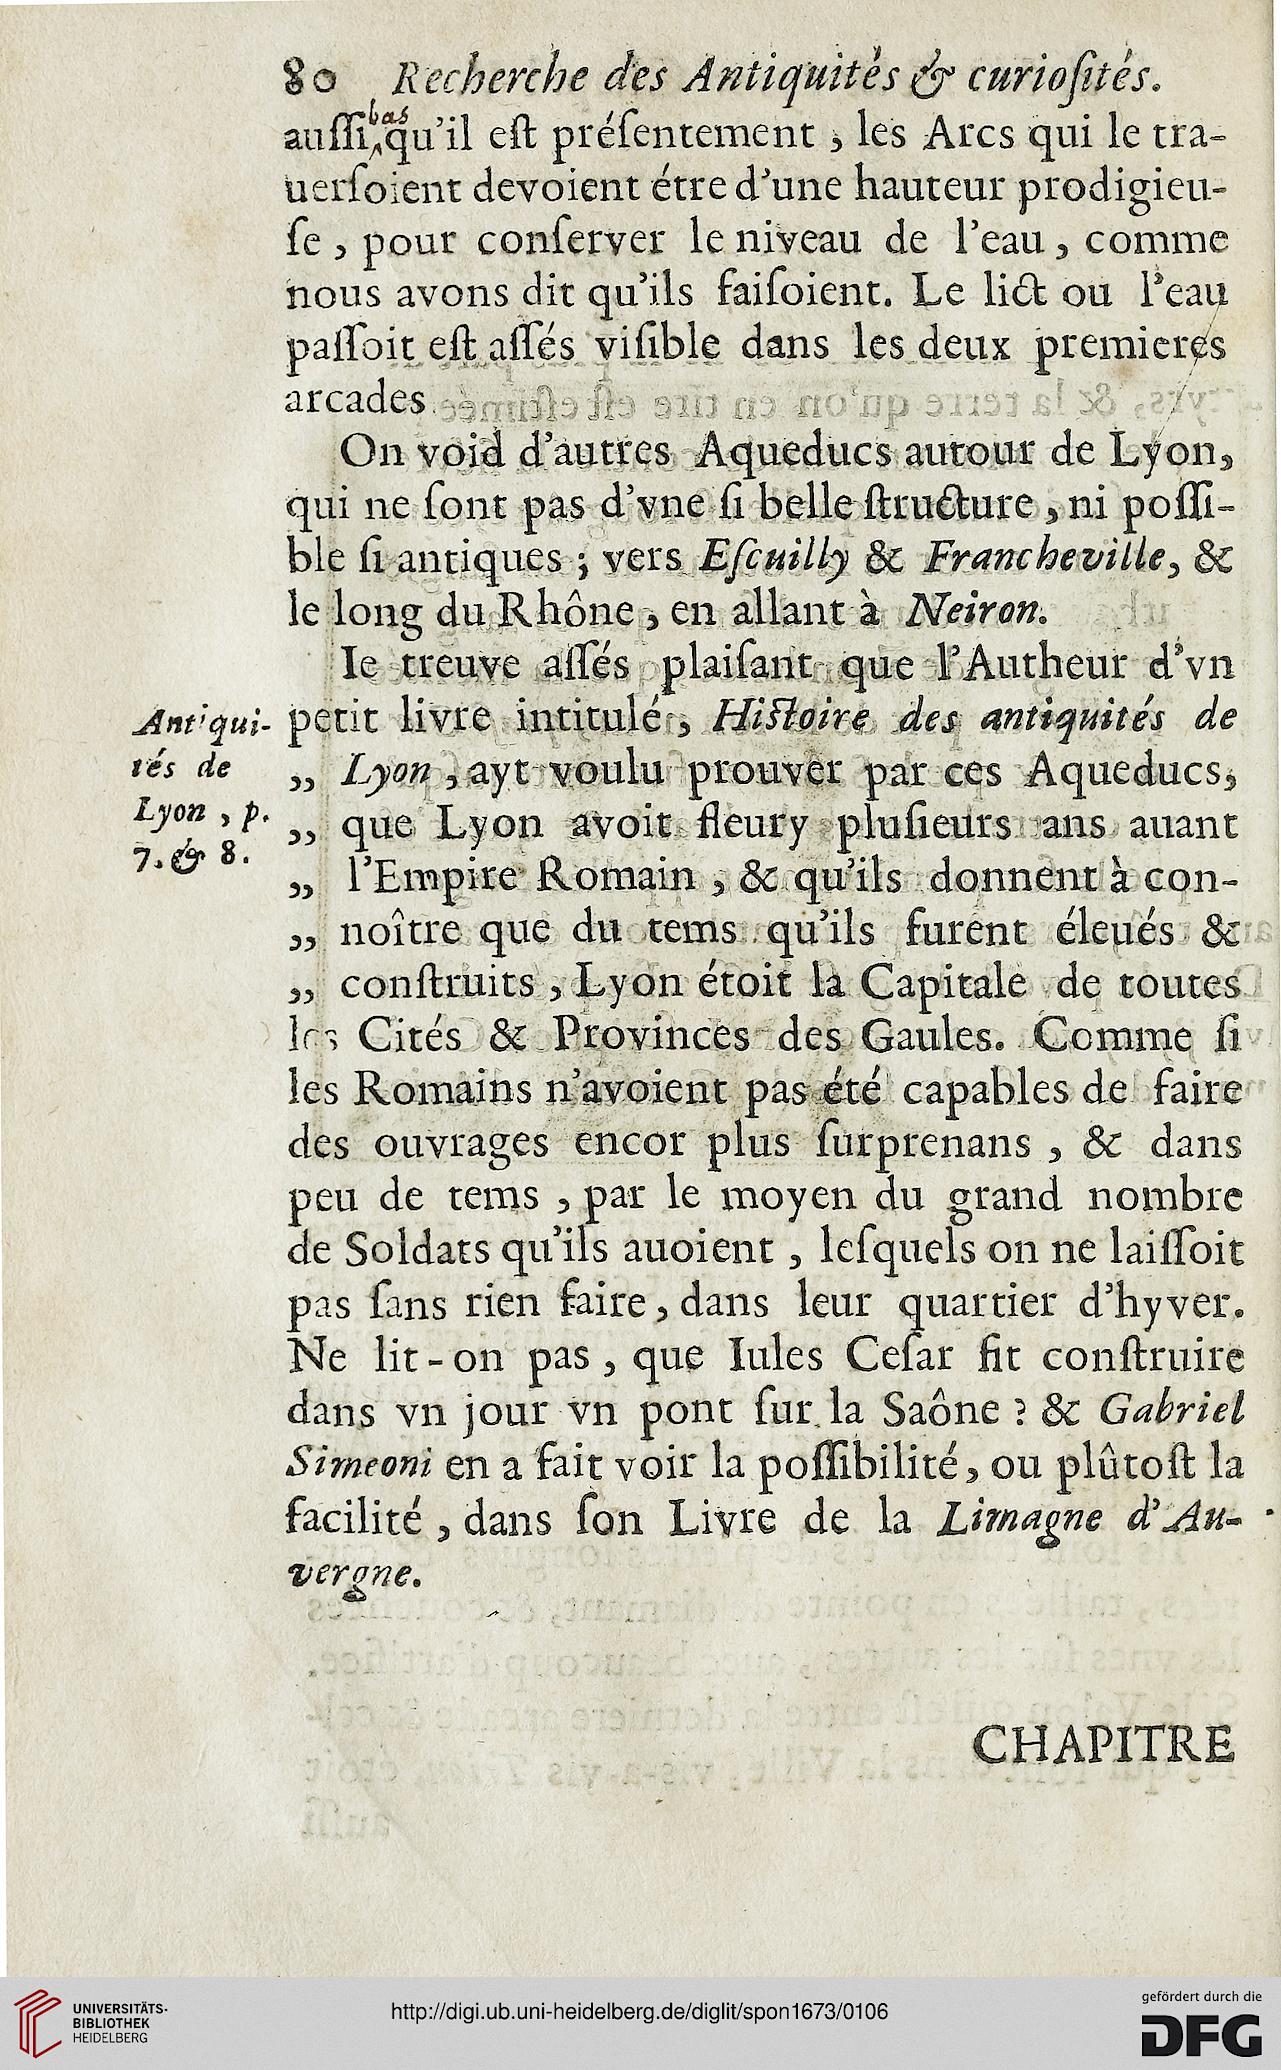 80 Recherche des Antiquités & curioſités.
bas
auſſi‸qu'il eſt préſentement, les Arcs qui le tra-
uerſoient devoient étre d'une hauteur prodigieu-
ſe, pour conſerver le niveau de l'eau, comme
nous avons dit qu'ils faiſoient. Le lict ou l'eau
paſſoit eſt aſſés viſible dans les deux premieres
arcades.
On void d'autres Aqueducs autour de Lyon,
qui ne ſont pas d'vne ſi belle ſtructure, ni poſſi-
ble ſi antiques; vers Eſcuilly & Francheville, &
le long du Rhône, en allant à Neiron.
Ie treuve aſſés plaiſant que l'Autheur d'vn
petit livre intitulé, Hiſtoire des antiquités de
„ Lyon, ayt voulu prouver par ces Aqueducs,
„ que Lyon avoit fleury pluſieurs ans auant
„ l'Empire Romain, & qu'ils donnent à con-
„ noître que du tems qu'ils furent éleués &
„ conſtruits, Lyon étoit la Capitale de toutes
les Cités & Provinces des Gaules. Comme ſi
les Romains n'avoient pas été capables de faire
des ouvrages encor plus ſurprenans, & dans
peu de tems, par le moyen du grand nombre
de Soldats qu'ils auoient, leſquels on ne laiſſoit
pas ſans rien faire, dans leur quartier d'hyver.
Ne lit-on pas, que Iules Ceſar fit conſtruire
dans vn jour vn pont ſur la Saône? & Gabriel
Simeoni en a fait voir la poſſibilité, ou plûtoſt la
facilité, dans ſon Livre de la Limagne d'Au-
vergne.
Antiqui-
tés de
Lyon, p.
7. & 8.
CHAPITRE
UNIVERSITÄTS-
BIBLIOTHEK
HEIDELBERG
http://digi.ub.uni-heidelberg.de/diglit/spon1673/0106
gefördert durch die
DFG